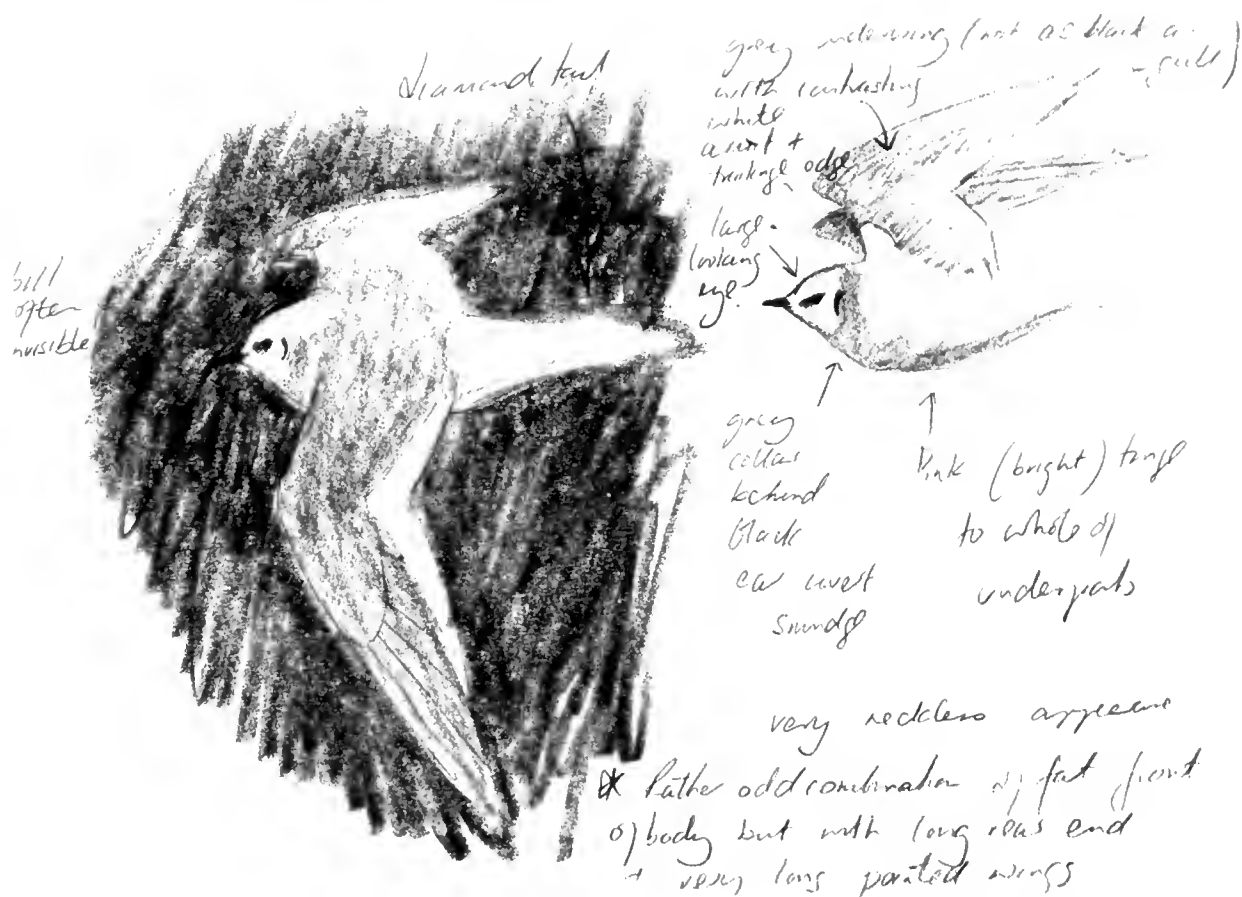 diamond tail
grey underwing (not as black a
with contrasting
white
trailing edge
large
looking
eye
bill
often
invisible
grey
collar
behind
black
ear covert
smudge
Pink (bright) tinge
to whole of
underparts
very neckless
Rather odd combination of fat front
of body but with long rear end
+ very long pointed wings